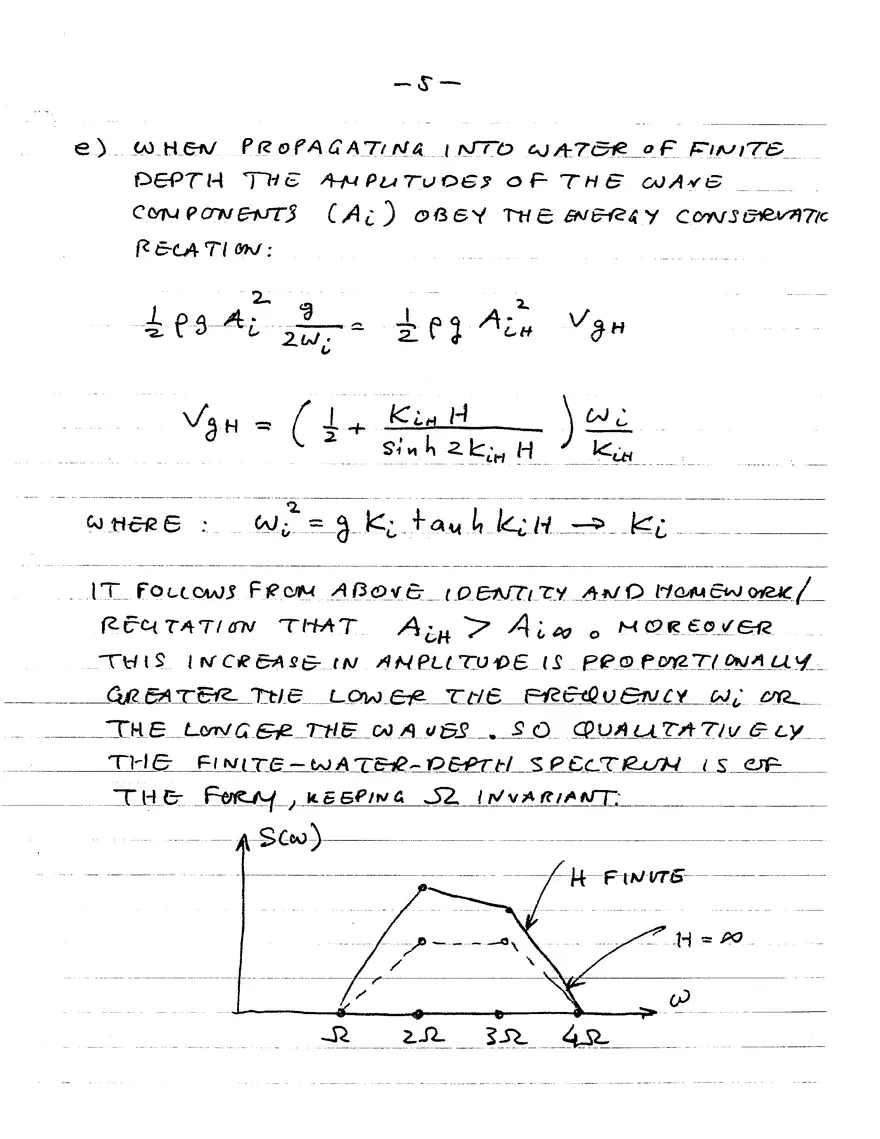 -5-
e) WHEN PROPAGATING INTO WATER OF FINITE
DEPTH THE AMPLITUDES OF THE WAVE
COMPONENTS (Ai) OBEY THE ENERGY CONSERVATIC
RELATION:
½ ρg Ai² g/2ωi = ½ ρg AiH² VgH
VgH = (½ + KiH H / sinh 2kiH H) ωi/KiH
WHERE : ωi² = g Ki tanh kiH → Ki
IT FOLLOWS FROM ABOVE IDENTITY AND HOMEWORK/
RECITATION THAT AiH > Ai∞. MOREOVER
THIS INCREASE IN AMPLITUDE IS PROPORTIONALLY
GREATER THE LOWER THE FREQUENCY ωi OR
THE LONGER THE WAVES. SO QUALITATIVELY
THE FINITE-WATER-DEPTH SPECTRUM IS OF
THE FORM, KEEPING Ω INVARIANT:
S(ω)
H FINITE
H = ∞
ω
Ω 2Ω 3Ω 4Ω